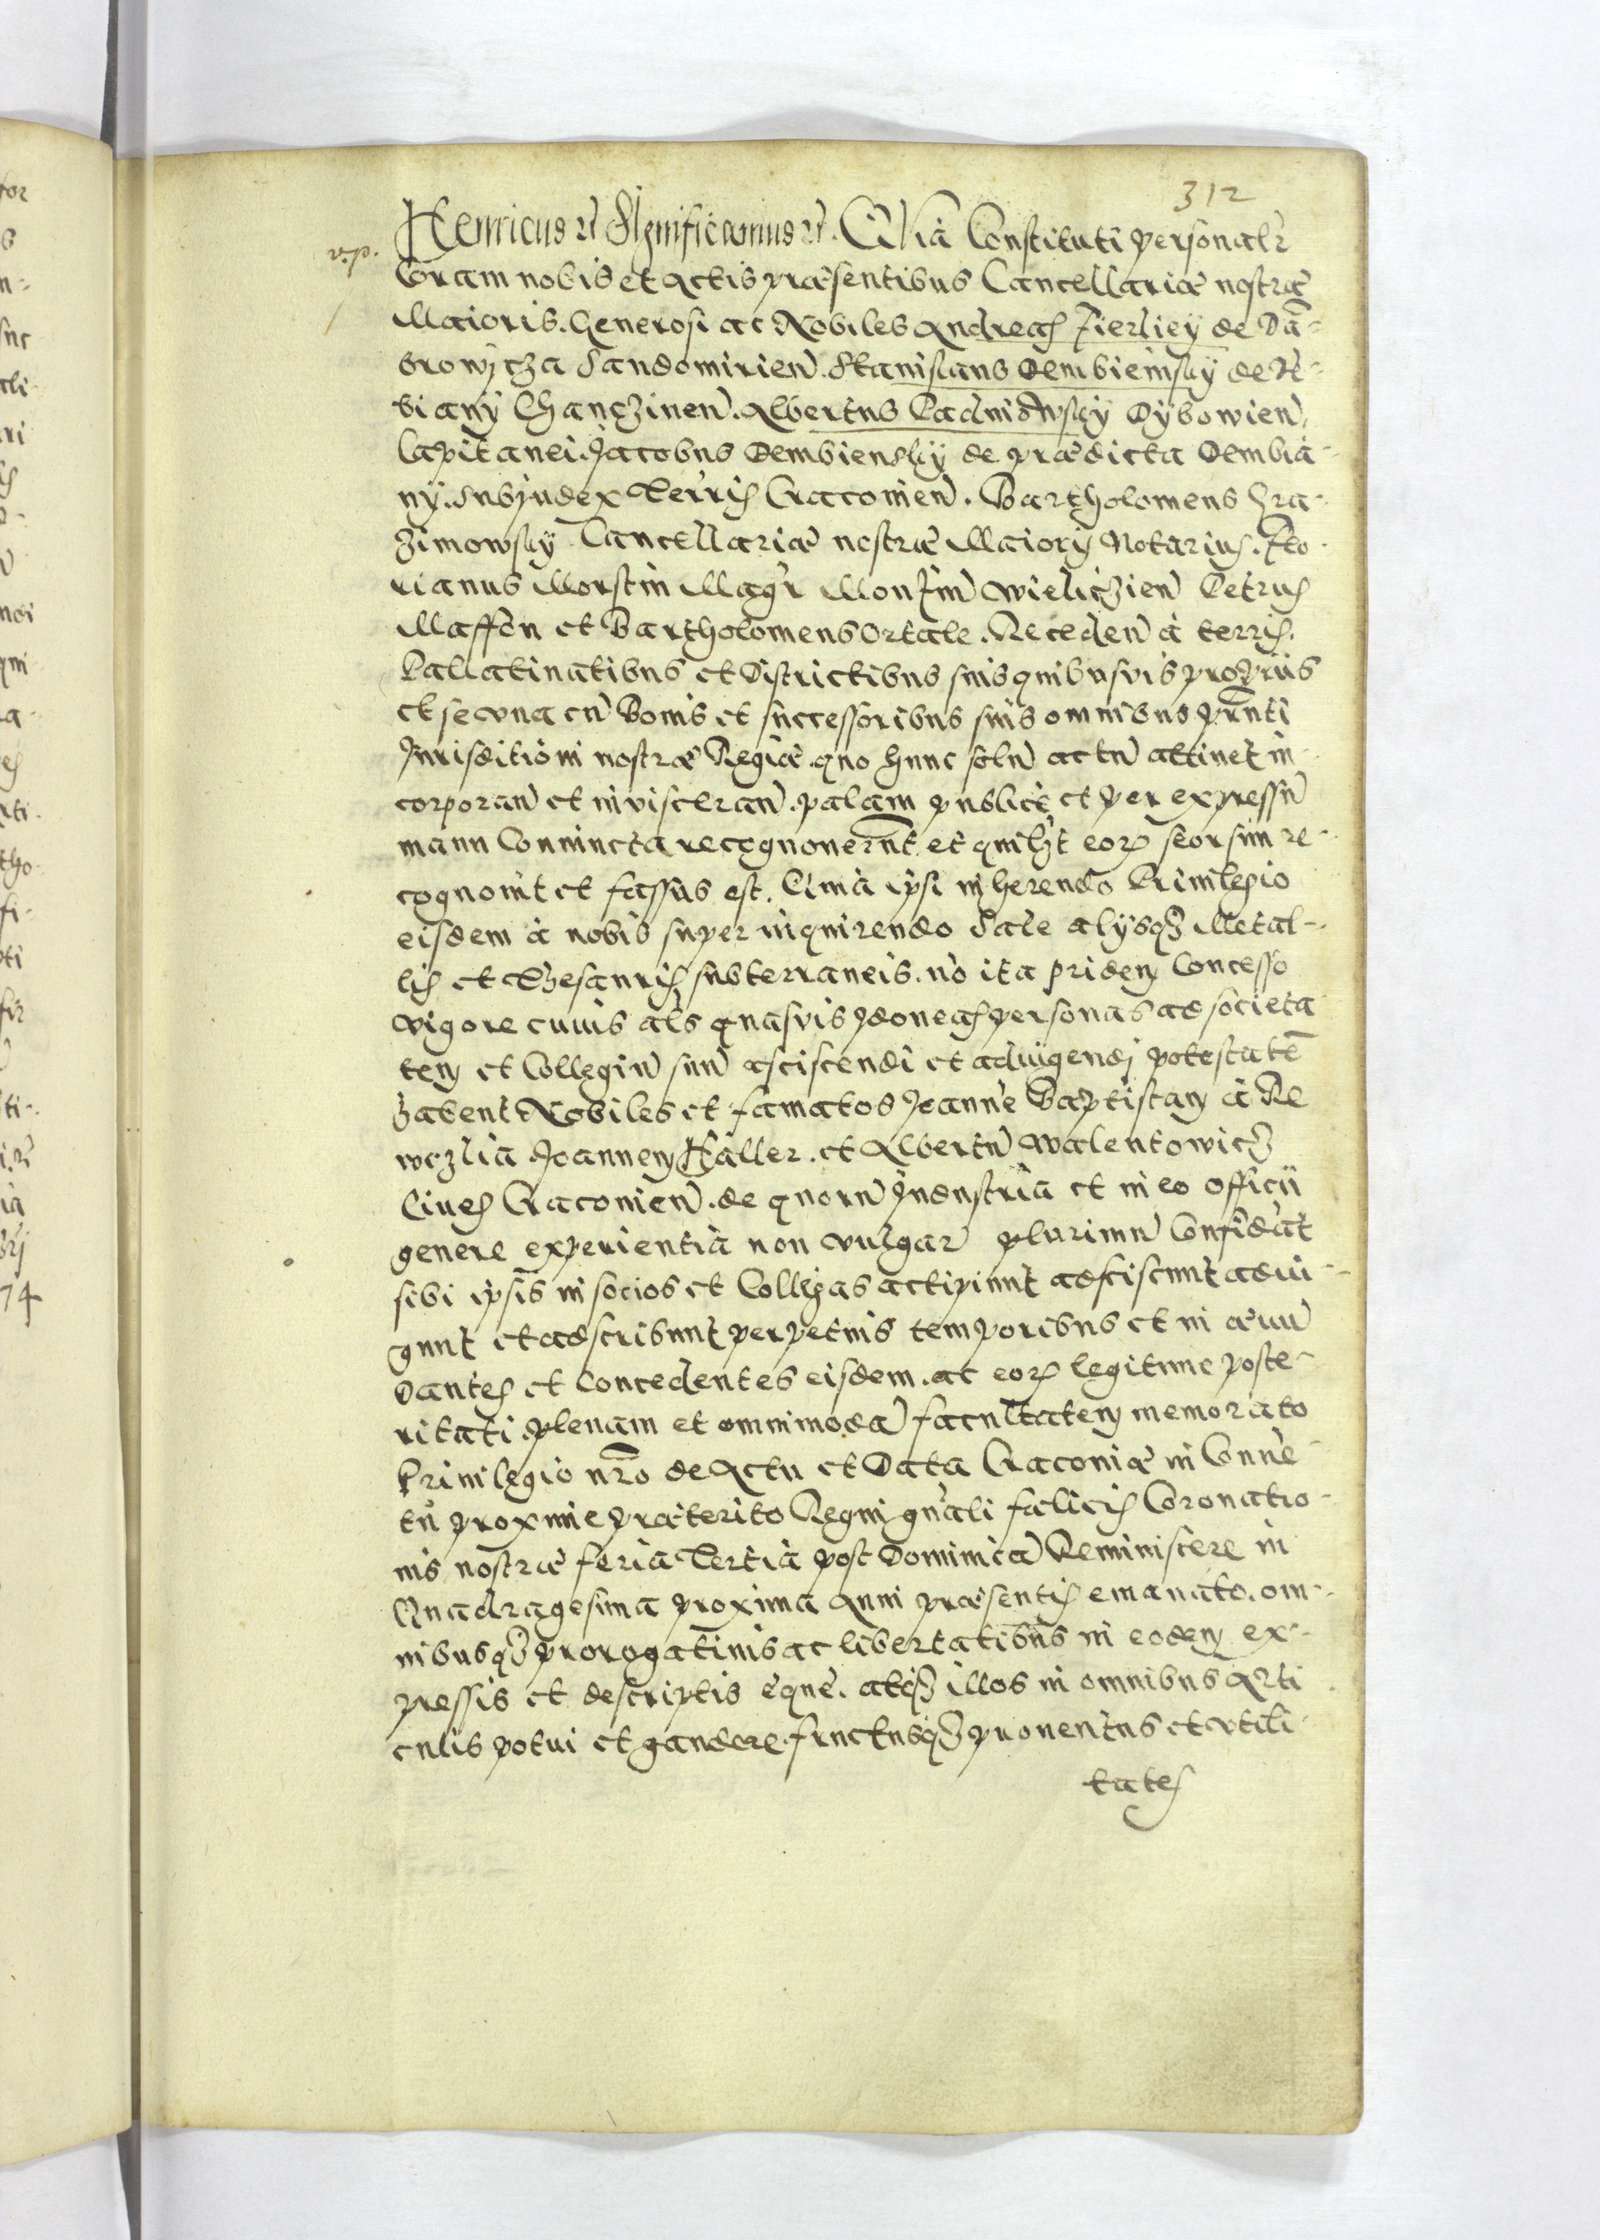 312
Henricus etc Significamus etc. Quia Constituti personalr
v.p.
Coram nobis et Actis præsentibus Cancellariæ nostræ
Maioris. Generosi ac Nobiles Andreas Fierlieÿ de Dā-
browÿcza Sandomirien̄. Stanislaus Dembieinskÿ de
bianÿ Chanczinen̄. Albertus Dÿbowien̄,
Capitanei. Jacobus Dembienskÿ de prædicta Dembia-
nÿ. Subjudex Terris̄ Cracouien̄. Bartholomeus Gra-
zimowskÿ Cancellariæ nostræ Maioris Notarius. Flo-
rianus Morstin Magr Wieliczien̄ Petrus
Maffon et Bartholomeus Ortale. Receden̄ à terris.
Pallatinatibus et Districtibus suis quibusvis proprijs
et se vna cū Bonis et successoribus suis omnibus prnti
Jurisditioni nostræ Regiæ quo hunc solū actū attinet in-
corporan̄ et inuisceran̄. palam publicè et per expressū
manu Coniuncta recognouerūt et quilibt eor seorsim re-
cognouit et fassus est. Quia ipsi inherendo Priuilegio
eisdem à nobis super inquirendo Sale alijsq Metal-
lis et Thesauris subterraneis. nō ita pridem Concesso
vigore cuius als quasvis Jdoneas personas ad societa
tem et Collegiū suū asciscendi et adiūgendi potestatē
habent Nobiles et famatos Joannē Baptistam à Re
wczlia Joannem Haller. et Albertū Walentowicz
Ciues Cracouien̄. de quorū Jndustria et in eo officij
genere experientia non vulgar plurimū Confidūt
sibi ipsis in socios et Collegas accipiunt adsciscunt adiū-
gunt et adscribunt perpetuis temporibus et in æuū
Dantes et Concedentes eisdem. ac eor legitime poste-
ritati plenam et omnimodā facultatem memorato
Priuilegio nro de Actu et Data Cracouiæ in Conuē-
tu proxime præterito Regni gnali fælicis Coronatio-
nis nostræ feria Tertia post Dominicā Reminiscere in
Quadragesima proxima Anni præsentis emanato. om-
nibusq prorogatiuis ac libertatibus in eodem ex-
pressis et descriptis èquè. atq illos in omnibus Arti
culis potiri et gaudere. fructusq prouentus et vtili-
tates